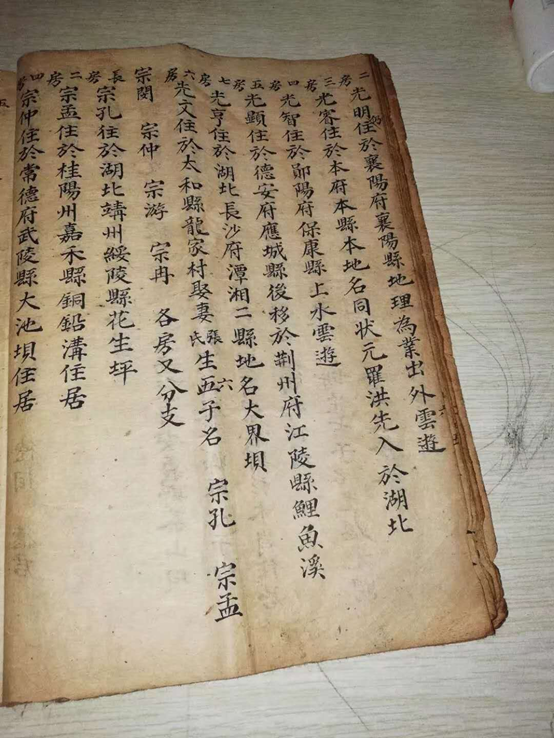 二房光明住於襄陽府襄陽縣地理為業出外雲遊
三房光睿住於本府本縣本地名同狀元羅洪先入於湖北
四房光智住於鄖陽府保康縣上水雲遊
五房光顯住於德安府應城縣後移於荆州府江陵縣鯉魚溪
七房光亨住於湖北長沙府潭湘二縣地名大界垻
六房光文住於太和縣龍家村娶妻張氏生五六子名 宗孔 宗孟
宗閔 宗仲 宗游 宗冉 各房又分支
長房宗孔住於湖北靖州綏陵縣花生坪
二房宗孟住於桂陽州嘉禾縣銅鉛溝住居
四房宗仲住於常德府武陵縣大池垻住居